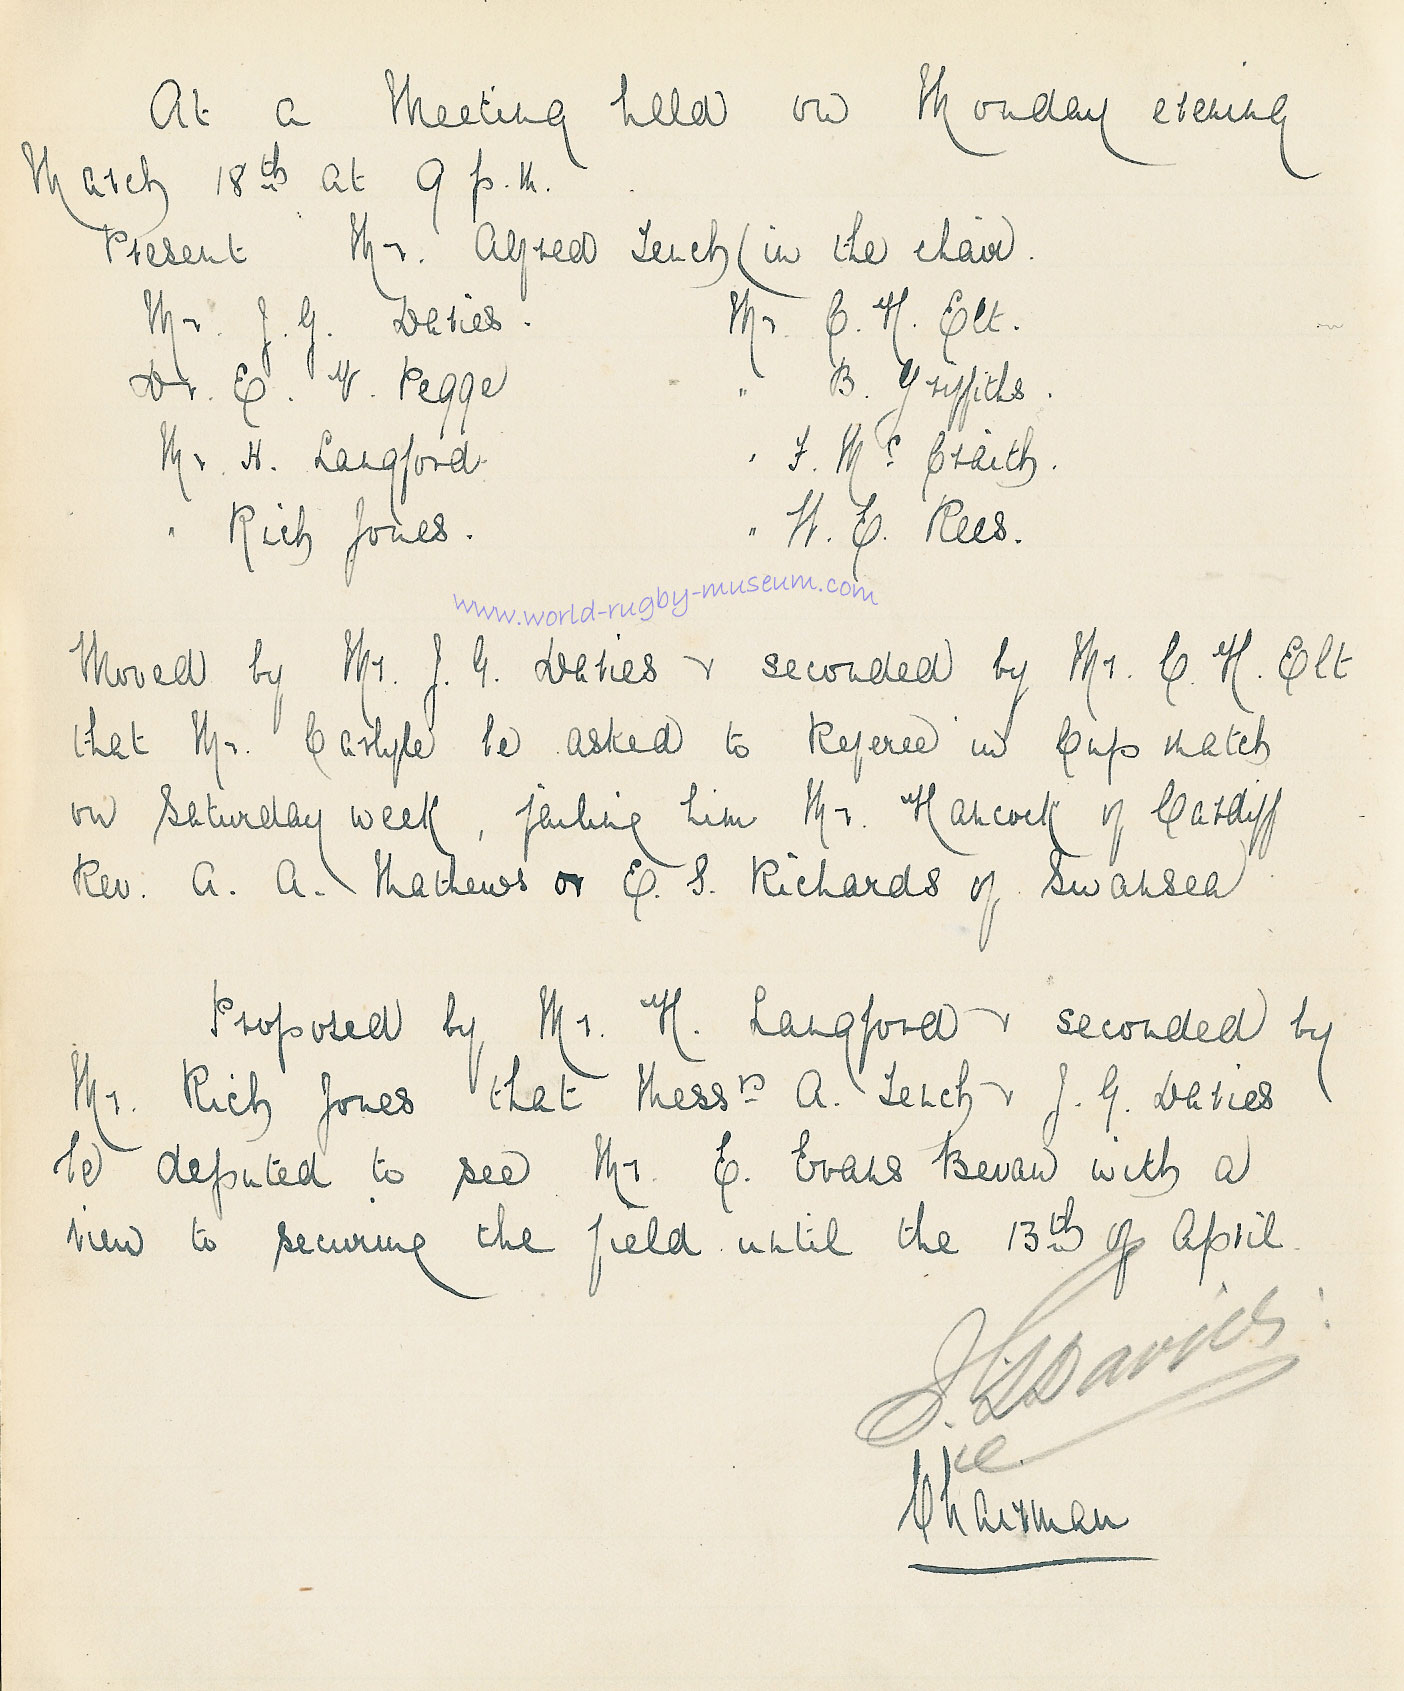 At a Meeting held on Monday evening
March 18th at 9 p.m.
Present Mr. Alfred Tench (in the chair.
Mr. J. G. Davies. Mr. C. H. Elt.
Dr. E. V. Pegge " B. Griffiths.
Mr. H. Langford " F. Mc Craith.
" Rich Jones. " W. E. Rees.
www.world-rugby-museum.com
Moved by Mr. J. G. Davies & seconded by Mr. C. H. Elt
that Mr. Carlyle be asked to Referee in Cup match
on Saturday week, failing him Mr. Hancock of Cardiff
Rev. A. A. Mathews or E. S. Richards of Swansea
Proposed by Mr. H. Langford & seconded by
Mr. Rich Jones that Messrs A. Tench & J. G. Davies
be deputed to see Mr. E. Evans Bevan with a
view to securing the field until the 13th of April.
J. G. Davies
Chairman